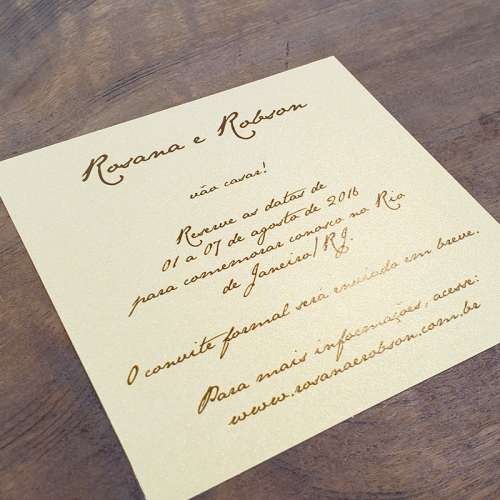 Rosana e Robson
vão casar!
Reserve as datas de
01 a 07 de agosto de 2018
para comemorar conosco no Rio
de Janeiro/RJ.
O convite formal será enviado em breve.
Para mais informações, acesse:
www.rosanaerobson.com.br